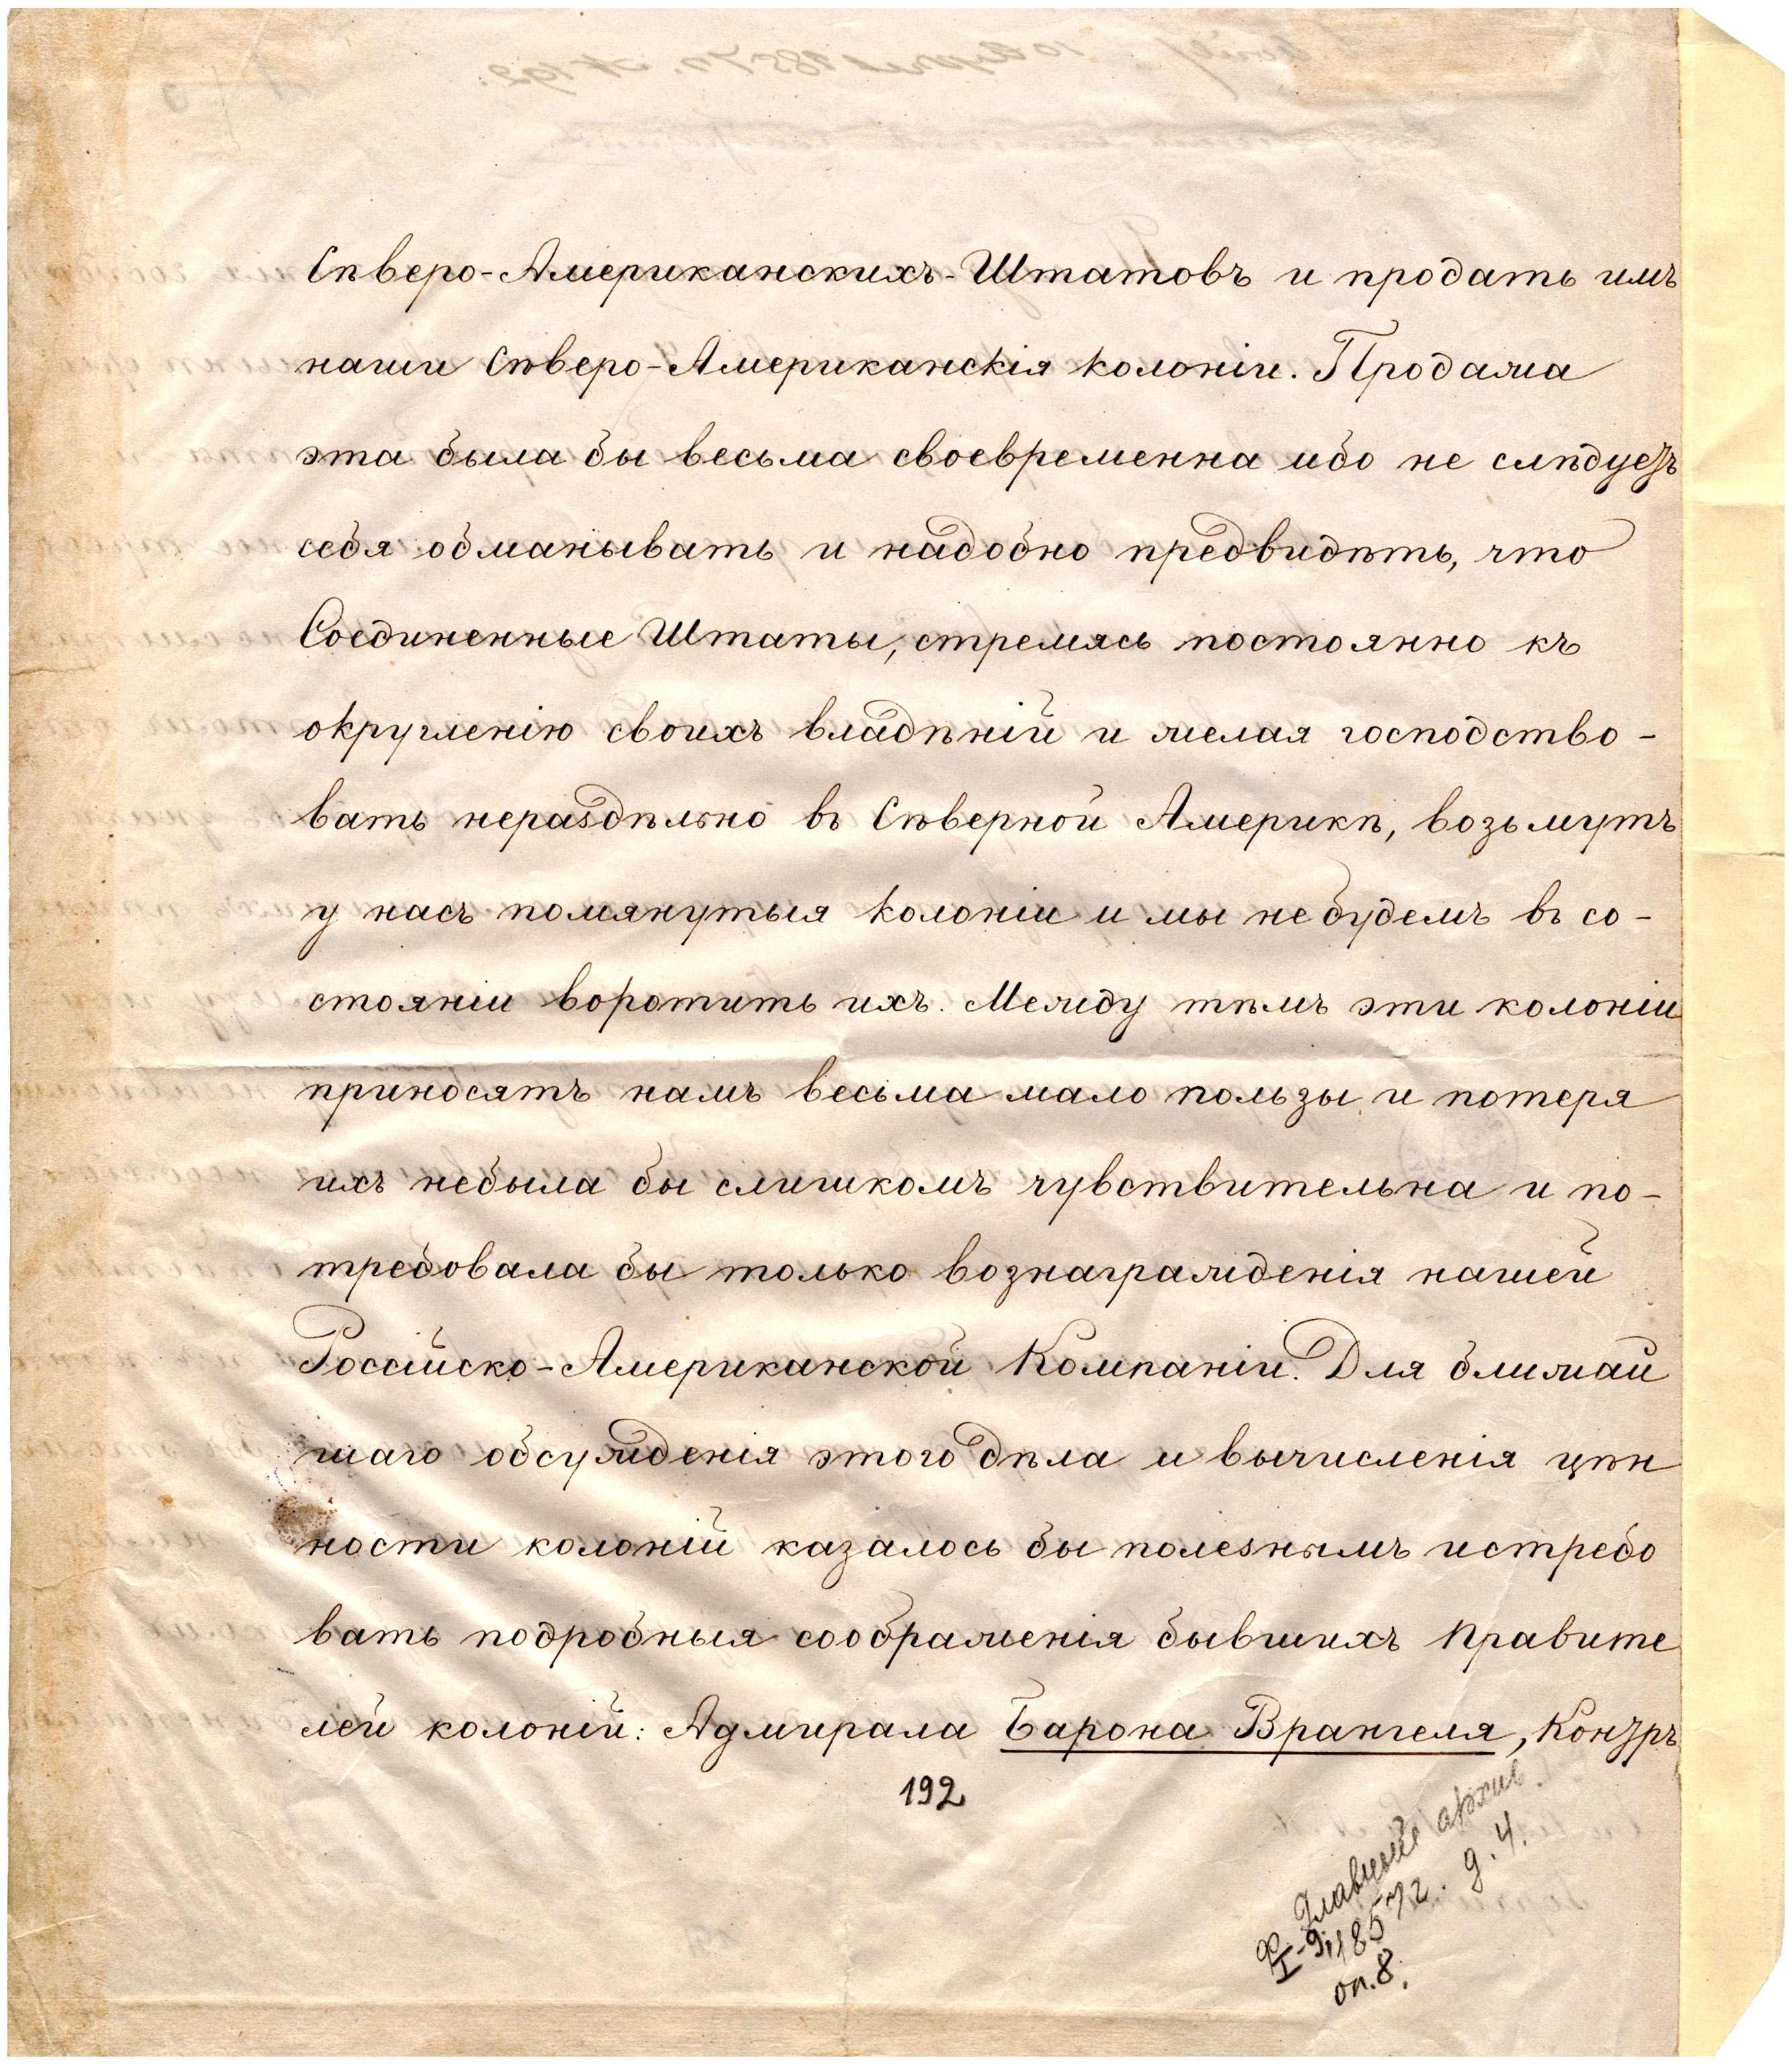 Сѣверо-Американскихъ-Штатовъ и продать имъ
наши Сѣверо-Американскія колоніи. Продажа
эта была бы весьма своевременна ибо не слѣдуетъ
себя обманывать и надобно предвидѣть, что
Соединенные Штаты, стремясь постоянно къ
округленію своихъ владѣній и желая господство-
вать нераздѣльно въ Сѣверной Америкѣ, возьмутъ
у насъ помянутыя колоніи и мы не будемъ въ со-
стояніи воротить ихъ. Между тѣмъ эти колоніи
приносятъ намъ весьма мало пользы и потеря
ихъ небыла бы слишкомъ чувствительна и по-
требовала бы только вознагражденія нашей
Россійско-Американской Компаніи. Для ближай
шаго обсужденія этого дѣла и вычисленія цѣн
ности колоній казалось бы полезнымъ истребо
вать подробныя соображенія бывшихъ Правите
лей колоній: Адмирала Барона Врангеля, Контръ
192
Ф. Главный архив.
I-9, 1857г. д. 4.
оп. 8.